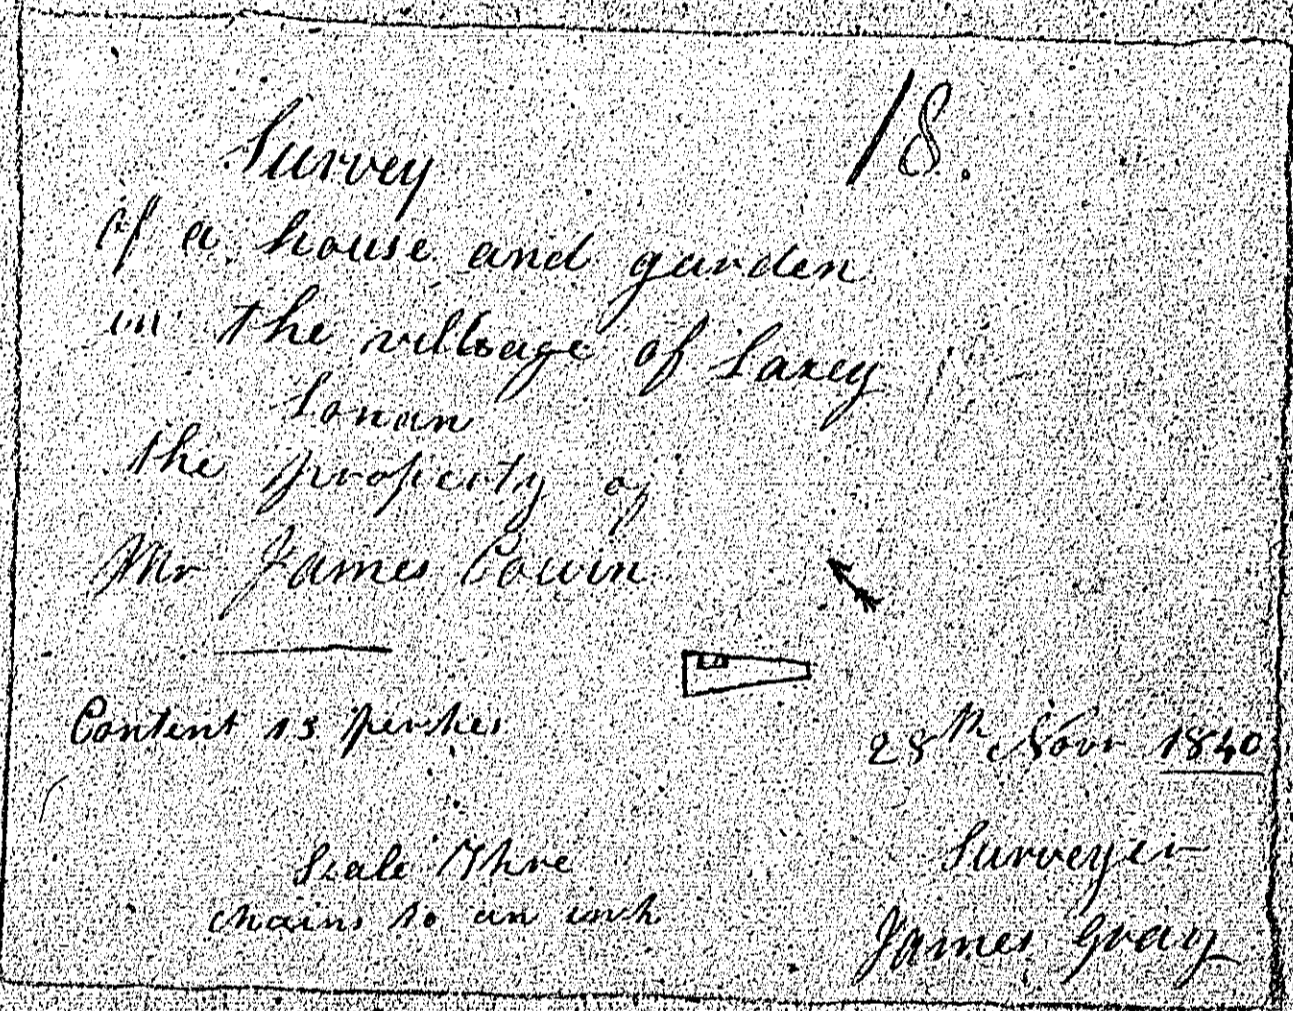 18.
Survey
of a house and garden
in the village of Laxey
Lonan
the property of
Mr James Cowin
Content 13 perches
28th Novr 1840
Scale Thre
chains to an inch
Surveyer
James Gray